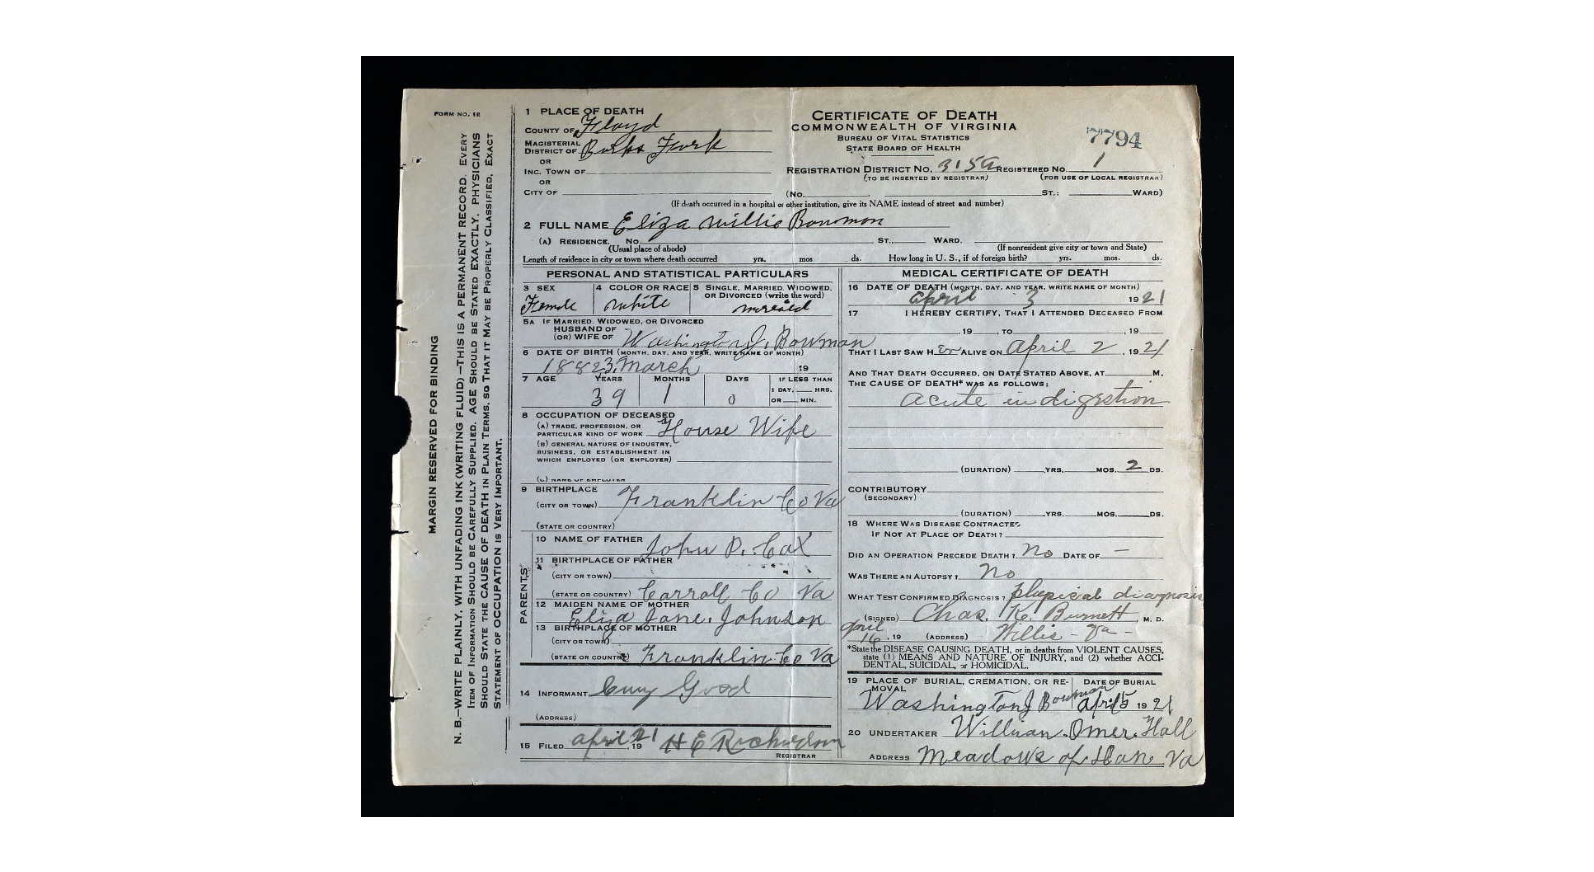 FORM NO. 12
MARGIN RESERVED FOR BINDING
N. B.—WRITE PLAINLY, WITH UNFADING INK (WRITING FLUID)—THIS IS A PERMANENT RECORD. EVERY
ITEM OF INFORMATION SHOULD BE CAREFULLY SUPPLIED. AGE SHOULD BE STATED EXACTLY. PHYSICIANS
SHOULD STATE THE CAUSE OF DEATH IN PLAIN TERMS, SO THAT IT MAY BE PROPERLY CLASSIFIED. EXACT
STATEMENT OF OCCUPATION IS VERY IMPORTANT.
1 PLACE OF DEATH
COUNTY OF Floyd
MAGISTERIAL
DISTRICT OF Burks Fork
OR
INC. TOWN OF
OR
CITY OF
CERTIFICATE OF DEATH
COMMONWEALTH OF VIRGINIA
BUREAU OF VITAL STATISTICS
STATE BOARD OF HEALTH
7794
REGISTRATION DISTRICT NO. 315a REGISTERED NO. 1
(TO BE INSERTED BY REGISTRAR) (FOR USE OF LOCAL REGISTRAR)
(No. ST.; WARD)
(If death occurred in a hospital or other institution, give its NAME instead of street and number)
2 FULL NAME Eliza Willie Bowman
(A) RESIDENCE. No. ST., WARD.
(Usual place of abode) (If nonresident give city or town and State)
Length of residence in city or town where death occurred yrs. mos ds. How long in U. S., if of foreign birth? yrs. mos. ds.
PERSONAL AND STATISTICAL PARTICULARS
3 SEX 4 COLOR OR RACE 5 SINGLE, MARRIED, WIDOWED,
OR DIVORCED (write the word)
Female white
5A IF MARRIED, WIDOWED, OR DIVORCED
HUSBAND OF
(OR) WIFE OF Washington J. Bowman
6 DATE OF BIRTH (MONTH, DAY, AND YEAR, WRITE NAME OF MONTH)
March 19
7 AGE YEARS MONTHS DAYS IF LESS THAN
1 DAY, HRS.
39 1 0 OR MIN.
8 OCCUPATION OF DECEASED
(A) TRADE, PROFESSION, OR
PARTICULAR KIND OF WORK House Wife
(B) GENERAL NATURE OF INDUSTRY,
BUSINESS, OR ESTABLISHMENT IN
WHICH EMPLOYED (OR EMPLOYER)
(C) NAME OF EMPLOYER
9 BIRTHPLACE
(CITY OR TOWN) Franklin Co Va
(STATE OR COUNTRY)
PARENTS
10 NAME OF FATHER John P. Cox
11 BIRTHPLACE OF FATHER
(CITY OR TOWN)
(STATE OR COUNTRY) Carroll Co Va
12 MAIDEN NAME OF MOTHER
Eliza Jane Johnson
13 BIRTHPLACE OF MOTHER
(CITY OR TOWN)
(STATE OR COUNTRY) Franklin Co Va
14 INFORMANT Good
(ADDRESS)
15 FILED april 19 21 H E Richardson
REGISTRAR
MEDICAL CERTIFICATE OF DEATH
16 DATE OF DEATH (MONTH, DAY, AND YEAR, WRITE NAME OF MONTH)
april 3 1921
17 I HEREBY CERTIFY, THAT I ATTENDED DECEASED FROM
, 19 , TO , 19
THAT I LAST SAW HEr ALIVE ON April 2, 1921
AND THAT DEATH OCCURRED, ON DATE STATED ABOVE, AT M.
THE CAUSE OF DEATH* WAS AS FOLLOWS:
acute indigestion
(DURATION) YRS. MOS. 2 DS.
CONTRIBUTORY
(SECONDARY)
(DURATION) YRS. MOS. DS.
18 WHERE WAS DISEASE CONTRACTED
IF NOT AT PLACE OF DEATH?
DID AN OPERATION PRECEDE DEATH? No DATE OF —
WAS THERE AN AUTOPSY? No
WHAT TEST CONFIRMED DIAGNOSIS? physical diagnosis
(SIGNED) Chas. K. Burnett M. D.
april 16, 19 (ADDRESS) Willis - Va -
*State the DISEASE CAUSING DEATH, or in deaths from VIOLENT CAUSES,
state (1) MEANS AND NATURE OF INJURY, and (2) whether ACCI-
DENTAL, SUICIDAL, or HOMICIDAL.
19 PLACE OF BURIAL, CREMATION, OR RE- DATE OF BURIAL
MOVAL
Washington J Bowman april 5 1921
20 UNDERTAKER William Omer Hall
ADDRESS Meadows of Dan Va